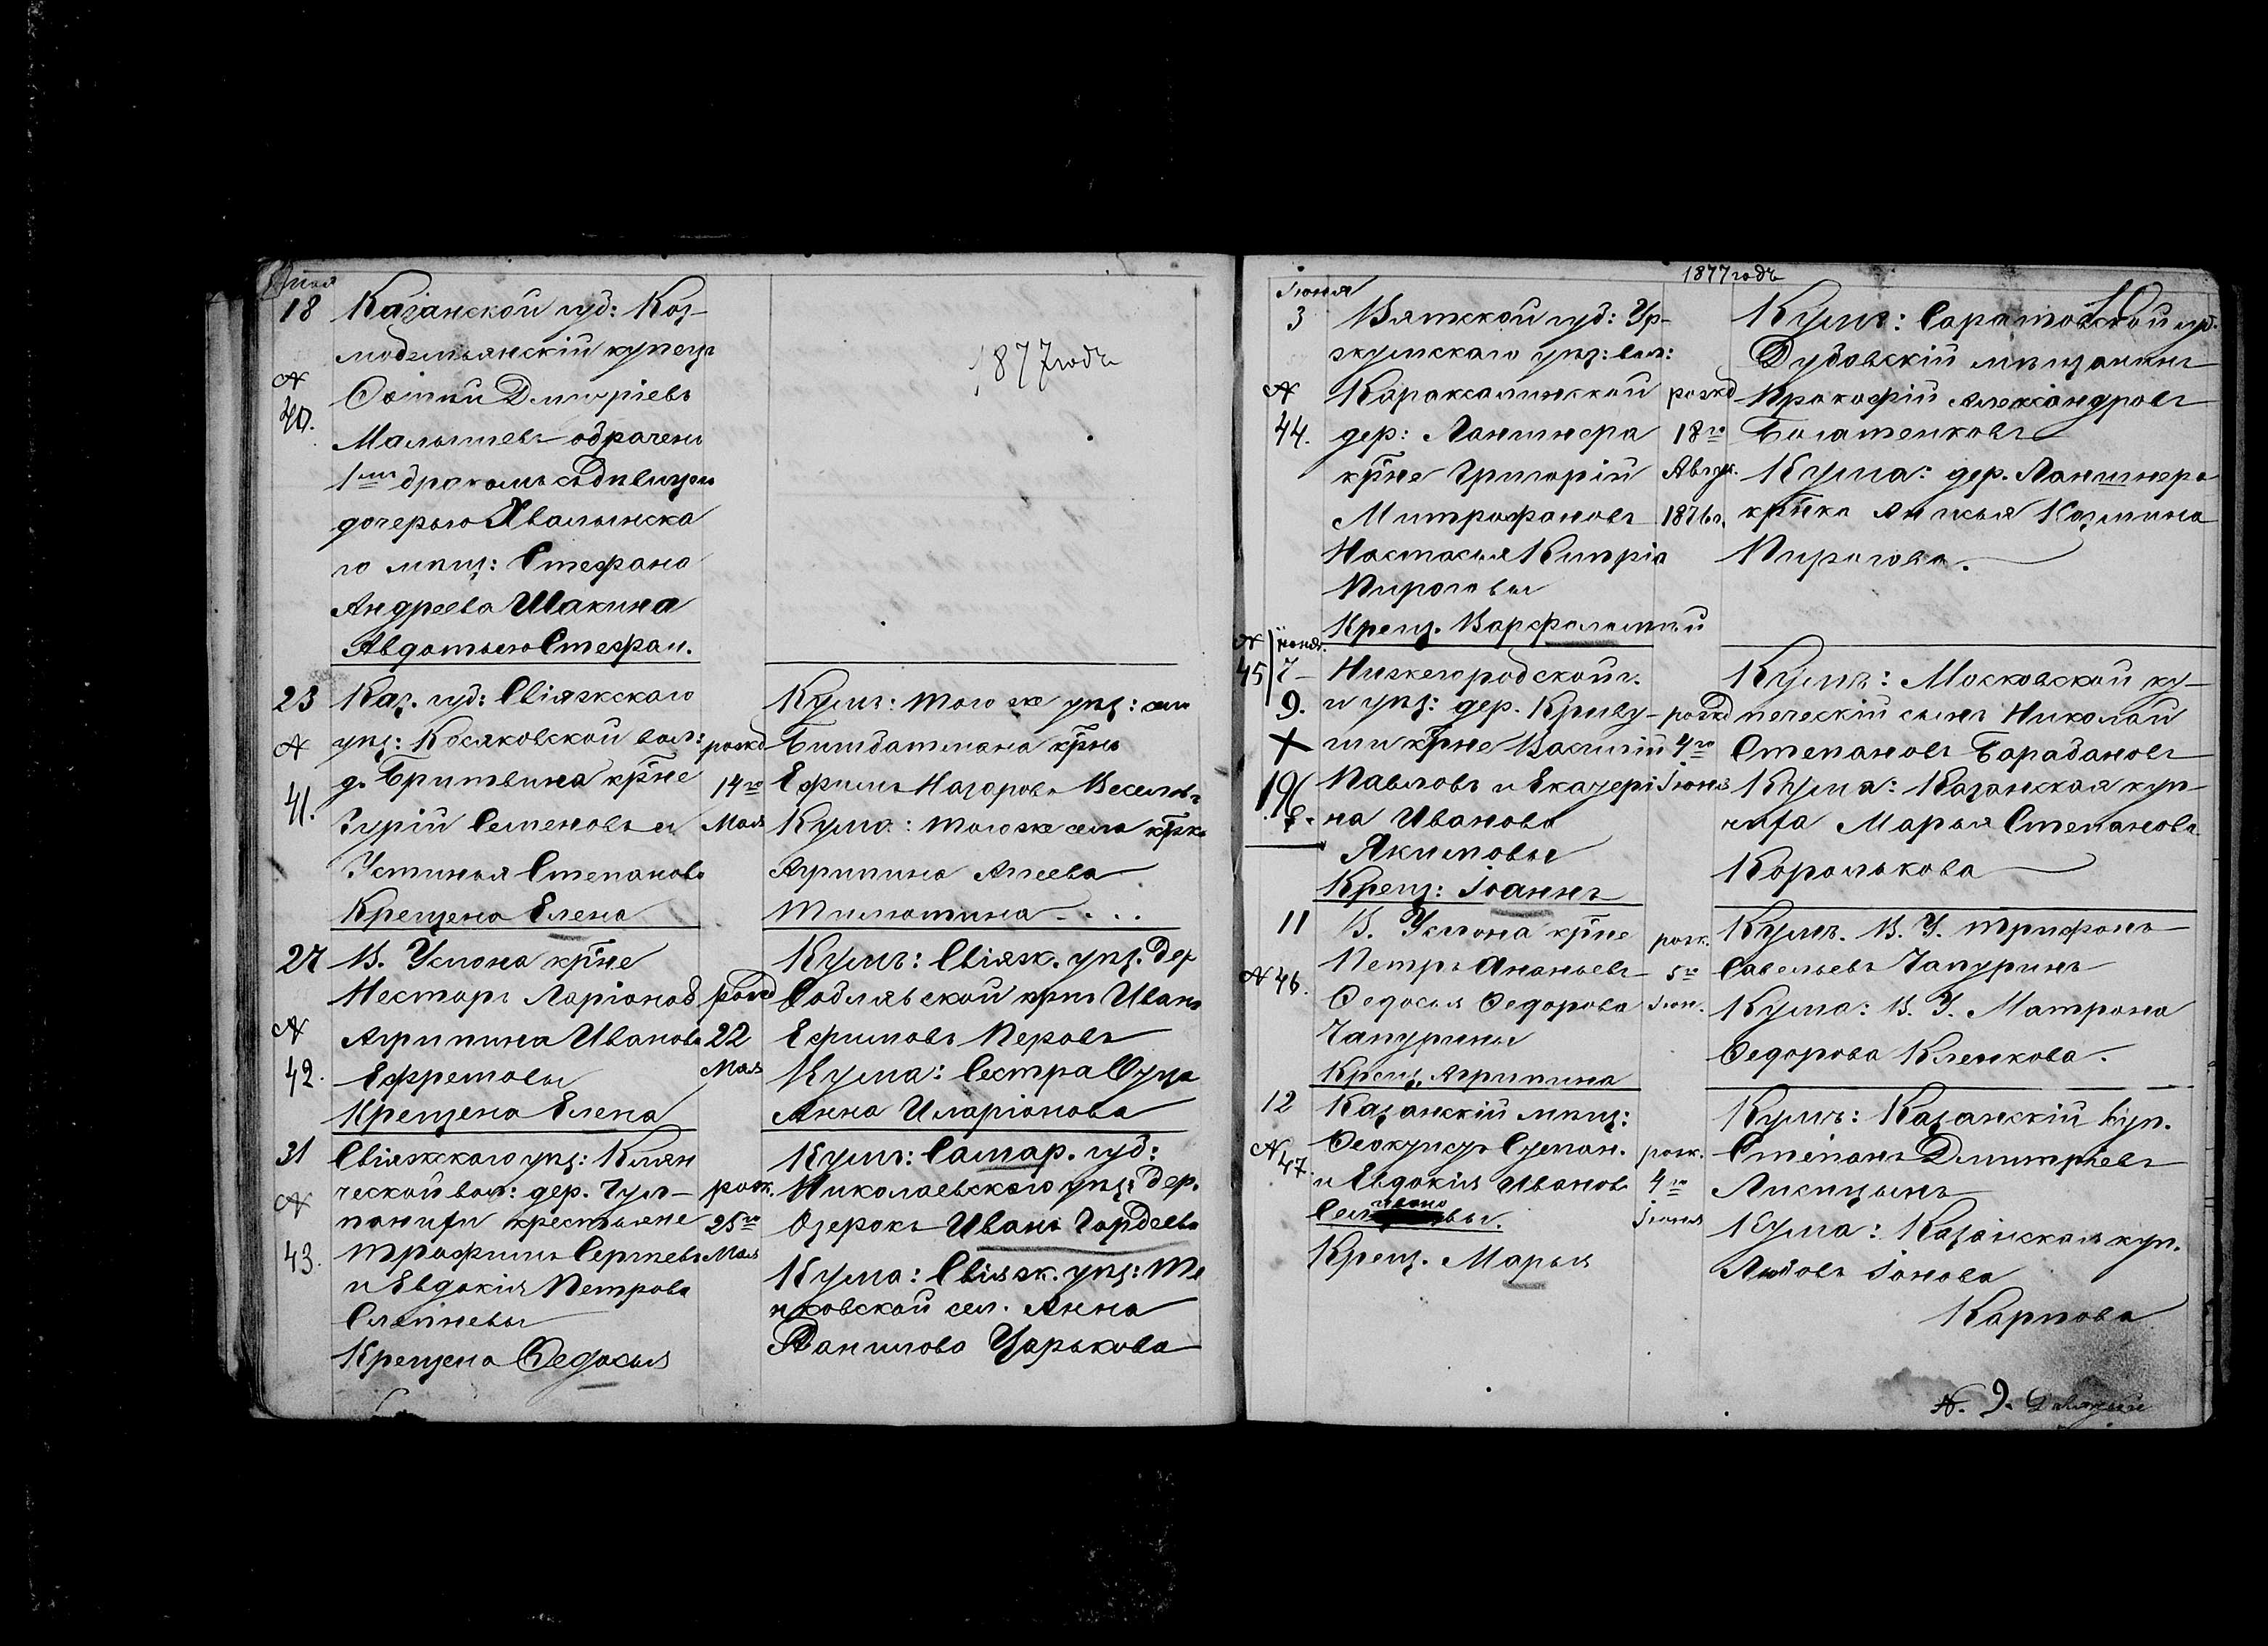 Мая
18 Казанской губ: Коз-
модемьянскій купецъ
№ 40. Дмитріевъ
Малышевъ обраченъ
1мъ бракомъ съ дѣвицею
дочерью Хвалынска
го мѣщ: Стефана
Андреева Шакина
Авдотьею Стефан.
1877 годъ
23 Каз. губ: Свіяжскаго
уѣз: Косяковской вол:
№ 41. д. Бритвина кр̃не
Гурій Семеновъ и
Устинья Степанова
Крещена Елена
рожд
14го
Мая
Кумъ: того же уѣз: села
кр̃нъ
Ефимъ Назаровъ Веселовъ
Кума: того же села кр̃ка
Агрипина Агеева
Тилютина . . .
27 В. Услона кр̃не
Несторъ Ларіонов
№ 42. Агрипина Иванова
Ефремовы
Крещена Елена
рожд
22
Мая
Кумъ: Свіяж. уѣз. дер
кр̃нъ Иванъ
Ефимовъ Перовъ
Кума: Сестра Отца
Анна Иларіонова
31 Свіяжскаго уѣз: Клян
ческой вол: дер. Гум-
№ 43. крестьяне
Трофимъ Сергѣевъ
и Евдокія Петрова
Крещена Ѳедосья
рож.
25го
Мая
Кумъ: Самар. губ:
Николаевскаго уѣз: дер.
Озерокъ Иванъ Гордеевъ
Кума: Свіяж. уѣз: Те
нковской сел. Анна
Данилова Царькова
1877 годъ
Іюня
3 Вятской губ: Ур-
жумскаго уѣз: вол:
№ 44. Караксалинской
дер: Ланшнера
кр̃не Григорій
Митрофановъ
Настасья Кипрія
Пироговы
Крещ. Варфоломѣй
рожд
18го
Авгус.
1876г.
Кумъ: Саратовской губ.
Дубовскій мѣщанинъ
Прокофій Александровъ
Богатенковъ
Кума: дер. Ланшнера
кр̃нка Анисья Козмина
Пирогова.
№ 45 Іюня.
7 Нижегородской г.
9. и уѣз: дер. Криву-
ши кр̃не Василій
Павловъ и Екатери
на Иванова
Якимовы
Крещ: Іоаннъ
рожд
4го
Іюня
Кумъ: Московской ку-
печескій сынъ Николай
Степановъ Барабановъ
Кума: Казанская куп-
чиха Марья Степанова
Королькова
11 В. Услона кр̃не
№ 46. Петръ Ананьевъ
Ѳедосья Ѳедорова
Чапурины
Крещ. Агрипина
рож.
5го
Іюн.
Кумъ. В. У. Трифонъ
Савельевъ Чапуринъ
Кума: В. У. Матрона
Ѳедорова Кленкова.
12 Казанскій мѣщ:
№ 47.
и Евдокія Иванов
Крещ. Марья
рож.
4го
Іюня
Кумъ: Казанскій куп.
Степанъ Дмитріевъ
Лисицынъ
Кума: Казанская куп.
Любовь Іонова
Карпова
№. 9.